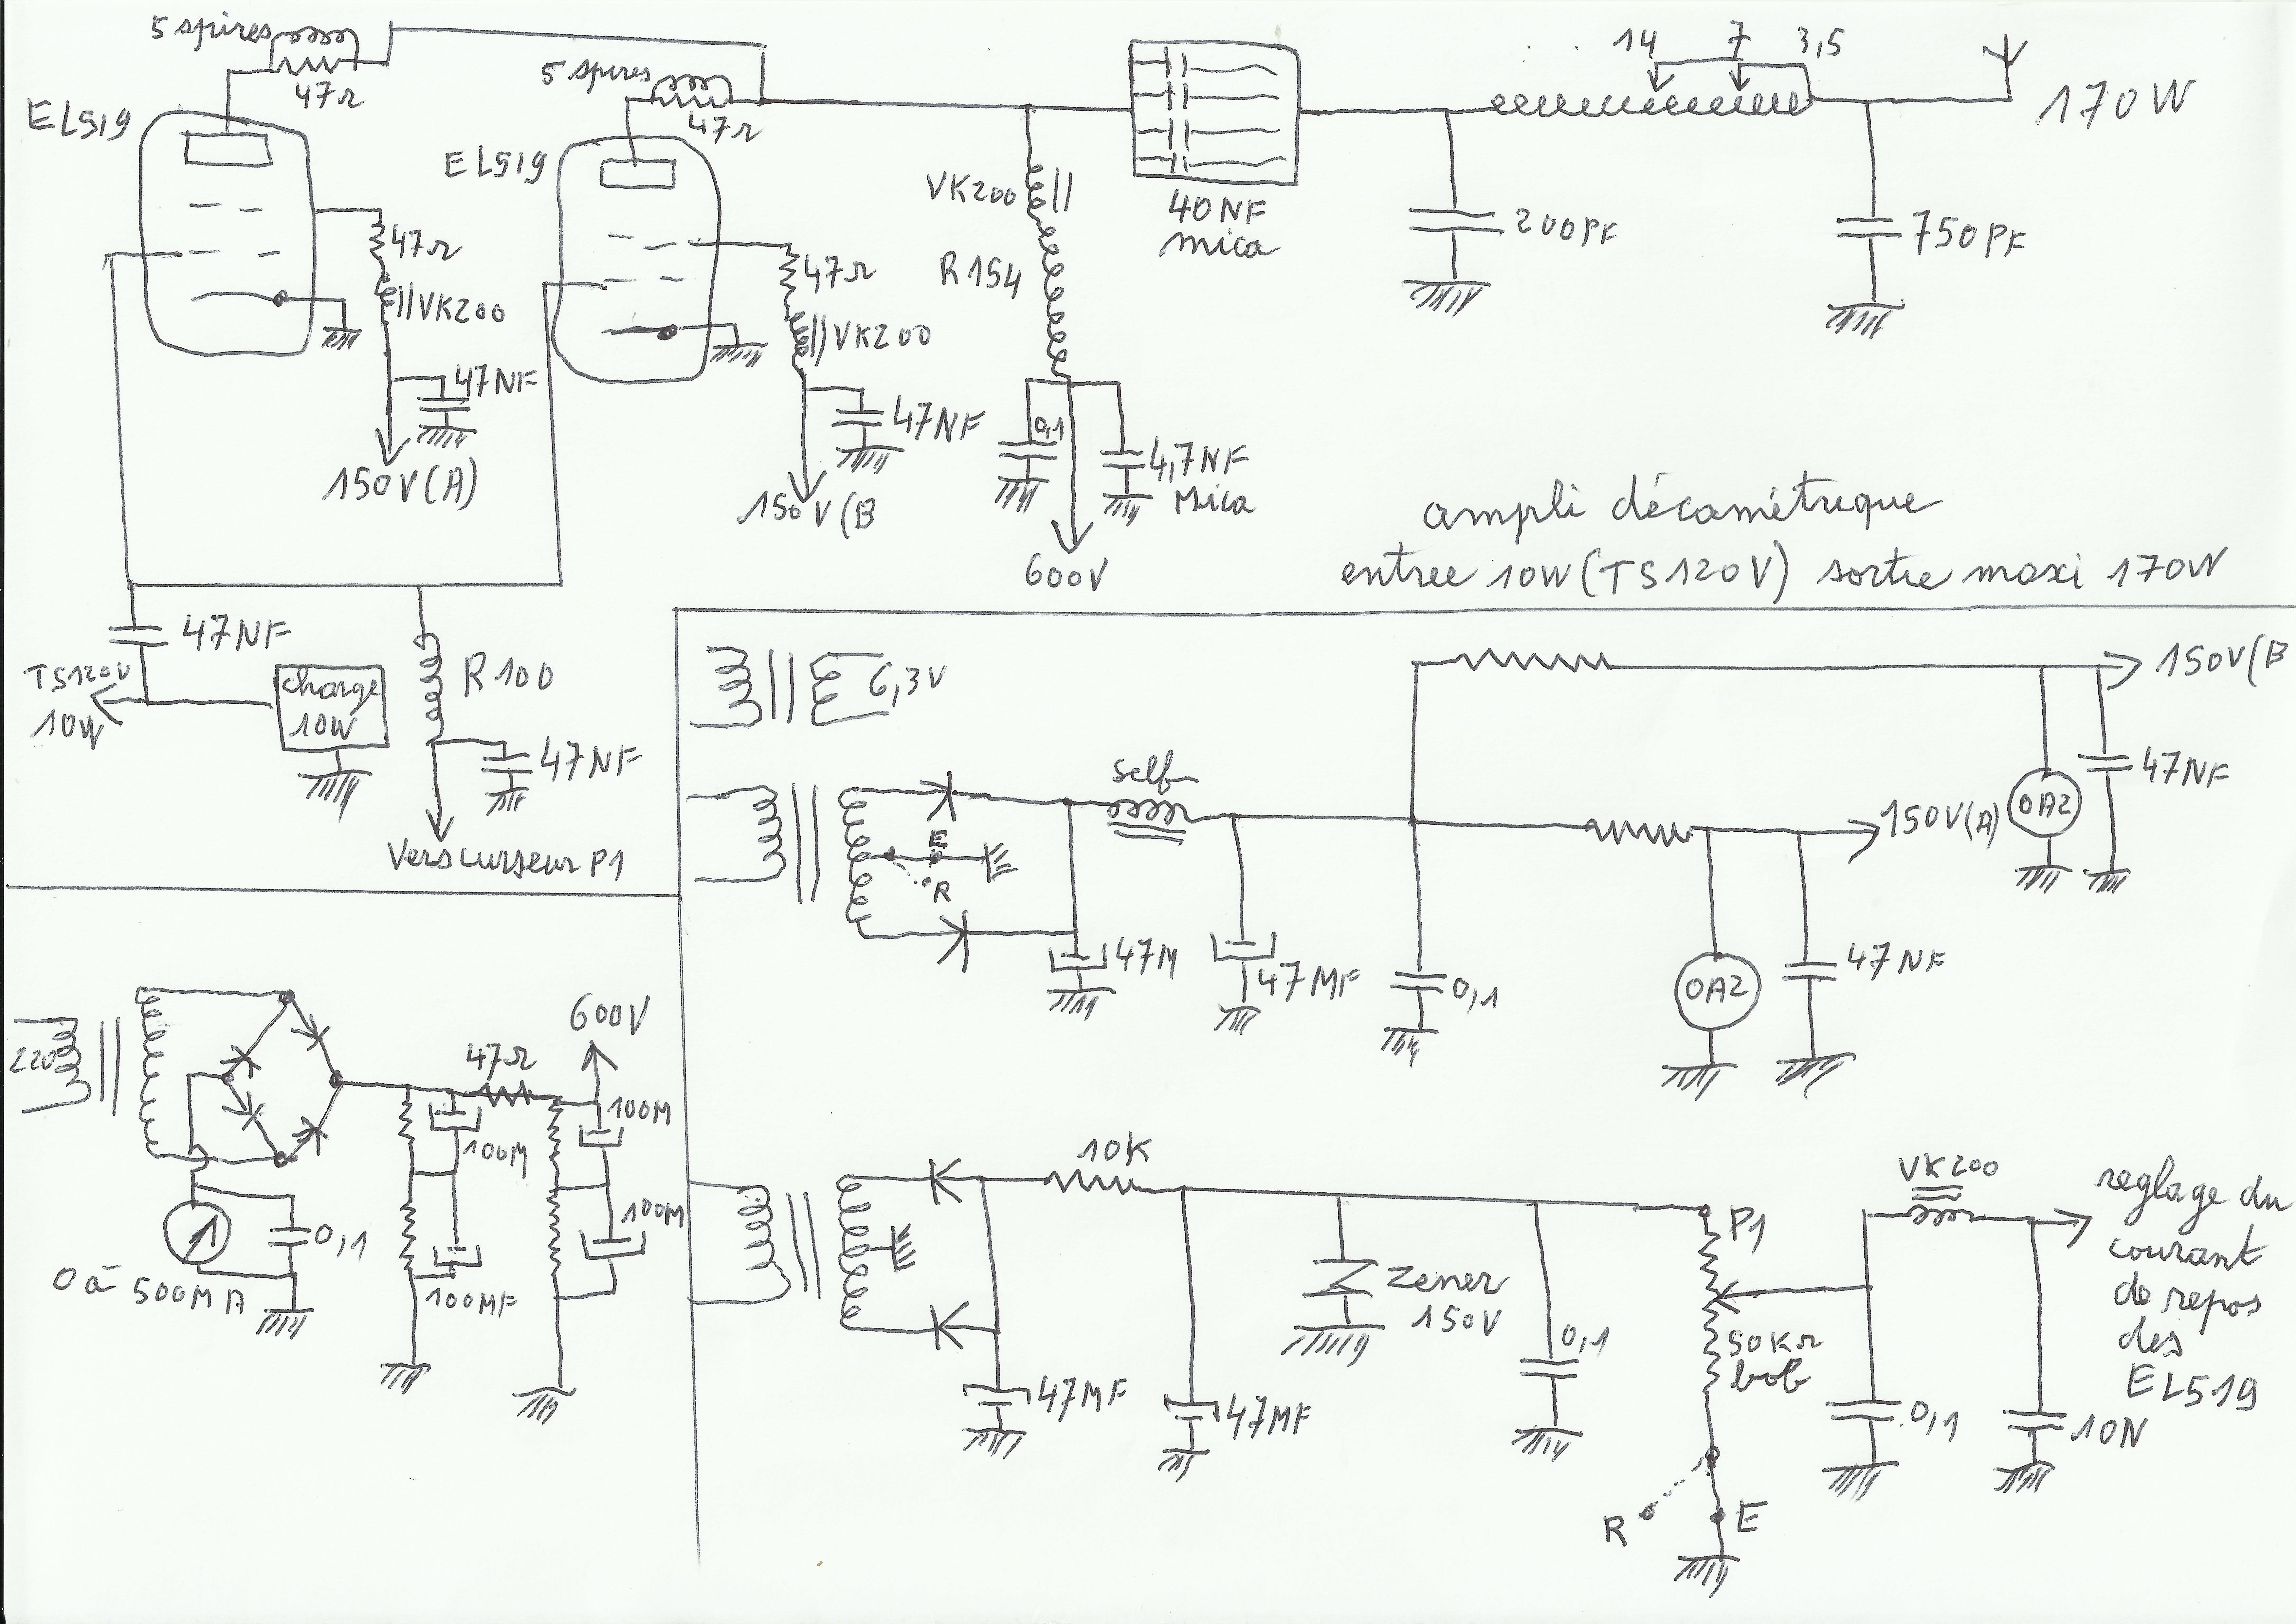 5 spires
47Ω
EL519
5 spires
47Ω
EL519
47Ω
VK200
47NF
150V(A)
47Ω
VK200
47NF
150V(B
VK200
R154
0,1
4,7NF
Mica
600V
40NF
mica
200PF
14 7 3,5
750PF
170W
ampli décamétrique
entree 10W (TS120V) sortie maxi 170W
47NF
TS120V
10W
charge
10W
R100
47NF
Vers curseur P1
6,3V
self
E
R
47M
47MF
0,1
150V(B
150V(A)
0A2
47NF
0A2
47NF
220
47Ω
600V
100M
100M
100M
100MF
0,1
0 à 500MA
10K
47MF
47MF
Zener
150V
0,1
P1
50KΩ
bob
R
E
VK200
0,1
10N
reglage du
courant
de repos
des
EL519